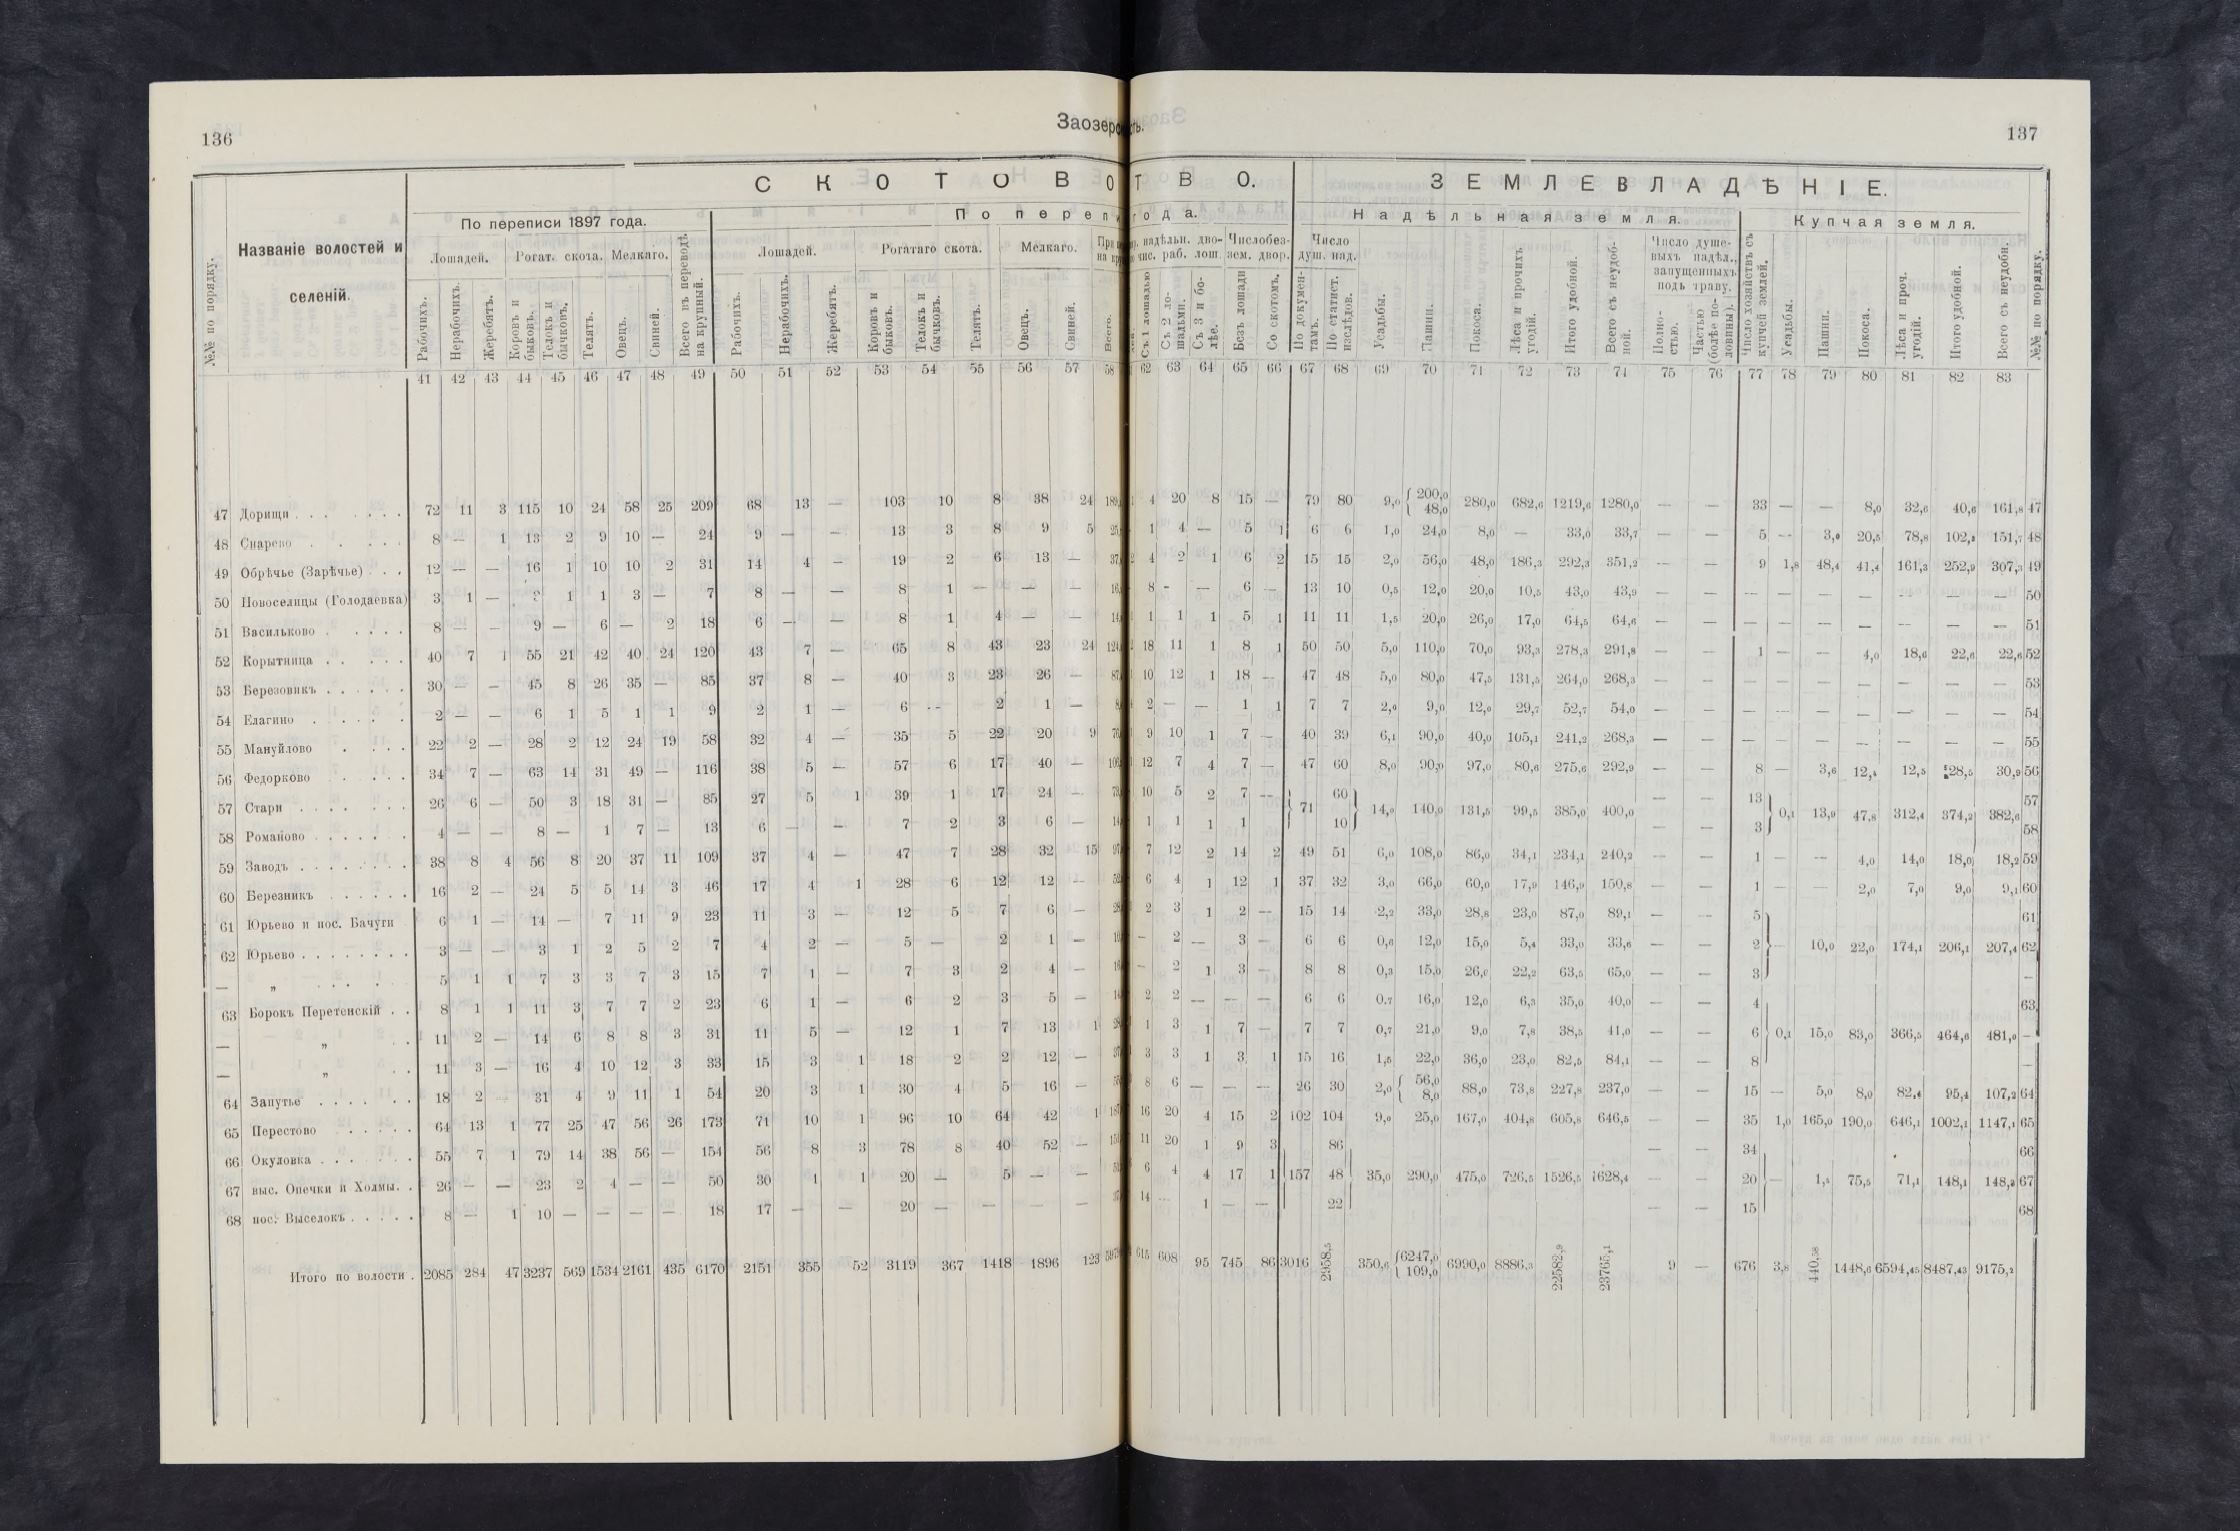 136
Заозерс
сть.
137
С К О Т О В О
Т В О.
З Е М Л Е В Л А Д Ѣ Н І Е.
№№ по порядку.
Названіе волостей и селеній.
По переписи 1897 года.
По перепи
года.
Надѣльная земля.
Купчая земля.
Лошадей. Рогат. скота. Мелкаго. Всего въ переводѣ на крупный.
Лошадей. Рогатаго скота. Мелкаго.
надѣльн. дво- раб. лош. Число без- зем. двор.
Число душ. над.
Число душе- выхъ надѣл., запущенныхъ подъ траву.
Рабочихъ. Нерабочихъ. Жеребятъ. Коровъ и быковъ. Телокъ и бычковъ. Телятъ. Овецъ. Свиней.
Рабочихъ. Нерабочихъ. Жеребятъ. Коровъ и быковъ. Телокъ и бычковъ. Телятъ. Овецъ. Свиней. Всего.
Съ 1 лошадью Съ 2 ло- шадьми. Съ 3 и бо- лѣе. Безъ лошади Со скотомъ.
По докумен- тамъ. По статист. изслѣдов. Усадьбы. Пашни. Покоса. Лѣса и прочихъ угодій. Итого удобной. Всего съ неудоб- ной. Полно- стью. Частью (болѣе по- ловины).
Число хозяйствъ съ купчей землей. Усадьбы. Пашни. Покоса. Лѣса и проч. угодій. Итого удобной. Всего съ неудобн. №№ по порядку.
41 42 43 44 45 46 47 48 49 50 51 52 53 54 55 56 57 58 62 63 64 65 66 67 68 69 70 71 72 73 74 75 76 77 78 79 80 81 82 83
47 Дорищи 72 11 3 115 10 24 58 25 209 68 13 — 103 10 8 38 24 4 20 8 15 — 79 80 9,0 { 200,0 48,0 280,0 682,6 1219,6 1280,0 — — 33 — — 8,0 32,6 40,6 161,8 47
48 Снарево 8 — 1 13 2 9 10 — 24 9 — — 13 3 8 9 5 1 4 — 5 1 6 6 1,0 24,0 8,0 — 33,0 33,7 — — 5 — 3,0 20,5 78,8 102,3 151,7 48
49 Обрѣчье (Зарѣчье) 12 — — 16 1 10 10 2 31 14 4 — 19 2 6 13 — 4 2 1 6 2 15 15 2,0 56,0 48,0 186,3 292,3 351,2 — — 9 1,8 48,4 41,4 161,3 252,9 307,3 49
50 Новоселицы (Голодаевка) 3 1 — 1 1 3 — 7 8 — — 8 1 — — — 8 - 6 — 13 10 0,5 12,0 20,0 10,5 43,0 43,9 — — — — — — — — — 50
51 Васильково 8 — — 9 — 6 — 2 18 6 — — 8 1 4 — — 1 1 1 5 1 11 11 1,5 20,0 26,0 17,0 64,5 64,6 — — — — — — — — — 51
52 Корытница 40 7 1 55 21 42 40 24 120 43 7 — 65 8 43 23 24 18 11 1 8 1 50 50 5,0 110,0 70,0 93,3 278,3 291,8 — — 1 — — 4,0 18,6 22,6 22,6 52
53 Березовикъ 30 — — 45 8 26 35 — 85 37 8 — 40 3 23 26 — 10 12 1 18 — 47 48 5,0 80,0 47,5 131,5 264,0 268,3 — — — — — — — — — 53
54 Елагино 2 — — 6 1 5 1 1 9 2 1 — 6 — 2 1 — 2 — — 1 1 7 7 2,0 9,0 12,0 29,7 52,7 54,0 — — — — — — — — — 54
55 Мануйлово 22 2 — 28 2 12 24 19 58 32 4 — 35 5 22 20 9 9 10 1 7 — 40 39 6,1 90,0 40,0 105,1 241,2 268,3 — — — — — — — — — 55
56 Федорково 34 7 — 63 14 31 49 — 116 38 5 — 57 6 17 40 — 12 7 4 7 — 47 60 8,0 90,0 97,0 80,6 275,6 292,9 — — 8 — 3,6 12,4 12,5 28,5 30,9 56
57 Стари 26 6 — 50 3 18 31 — 85 27 5 1 39 1 17 24 — 10 5 2 7 — } 71 60 } 14,0 140,0 131,5 99,5 385,0 400,0 — — 13 } 0,1 13,9 47,8 312,4 374,2 382,6 57
58 Романово 4 — — 8 — 1 7 — 13 6 — — 7 2 3 6 — 1 1 1 1 10 — — 3 58
59 Заводъ 38 8 4 56 8 20 37 11 109 37 4 — 47 7 28 32 15 7 12 2 14 2 49 51 6,0 108,0 86,0 34,1 234,1 240,2 — — 1 — — 4,0 14,0 18,0 18,2 59
60 Березникъ 16 2 — 24 5 5 14 3 46 17 4 1 28 6 12 12 — 6 4 1 12 1 37 32 3,0 66,0 60,0 17,9 146,9 150,8 — — 1 — — 2,0 7,0 9,0 9,1 60
61 Юрьево и пос. Бачуги 6 1 — 14 — 7 11 9 23 11 3 — 12 5 7 6 — 2 3 1 2 — 15 14 2,2 33,0 28,8 23,0 87,0 89,1 — — 5 61
62 Юрьево 3 — — 3 1 2 5 2 7 4 2 — 5 — 2 1 — — 2 — 3 — 6 6 0,6 12,0 15,0 5,4 33,0 33,6 — — 2 } — 10,0 22,0 174,1 206,1 207,4 62
— „ 5 1 1 7 3 3 7 3 15 7 1 — 7 3 2 4 — — 2 1 3 — 8 8 0,3 15,0 26,0 22,2 63,5 65,0 — — 3 —
63 Борокъ Перетенскій 8 1 1 11 3 7 7 2 23 6 1 — 6 2 3 5 — 2 2 — — — 6 6 0,7 16,0 12,0 6,3 35,0 40,0 — — 4 63
— „ 11 2 — 14 6 8 8 3 31 11 5 — 12 1 7 13 1 1 3 1 7 — 7 7 0,7 21,0 9,0 7,8 38,5 41,0 — — 6 0,1 15,0 83,0 366,5 464,6 481,0 —
— „ 11 3 — 16 4 10 12 3 33 15 3 1 18 2 2 12 — 3 3 1 3 1 15 16 1,5 22,0 36,0 23,0 82,5 84,1 — — 8 —
64 Запутье 18 2 — 31 4 9 11 1 54 20 3 1 30 4 5 16 — 8 6 — — — 26 30 2,0 { 56,0 8,0 88,0 73,8 227,8 237,0 — — 15 — 5,0 8,0 82,4 95,4 107,2 64
65 Перестово 64 13 1 77 25 47 56 26 173 71 10 1 96 10 64 42 1 16 20 4 15 2 102 104 9,0 25,0 167,0 404,8 605,8 646,5 — — 35 1,0 165,0 190,0 646,1 1002,1 1147,1 65
66 Окуловка 55 7 1 79 14 38 56 — 154 56 8 3 78 8 40 52 — 11 20 1 9 3 86 — — 34 66
67 выс. Опечки и Холмы. 26 — — 23 2 4 — — 50 30 1 1 20 — 5 — — 6 4 4 17 1 157 48 35,0 290,0 475,0 726,5 1526,5 1628,4 — — 20 — 1,5 75,5 71,1 148,1 148,2 67
68 пос. Выселокъ 8 — 1 10 — — — — 18 17 — — 20 — — — — 14 — 1 — — 22 — — 15 68
Итого по волости . 2085 284 47 3237 569 1534 2161 435 6170 2151 355 52 3119 367 1418 1896 123 615 608 95 745 86 3016 2958,5 350,6 { 6247,0 109,0 6990,0 8886,3 22582,9 23765,1 9 — 676 3,8 440,58 1448,6 6594,45 8487,43 9175,2